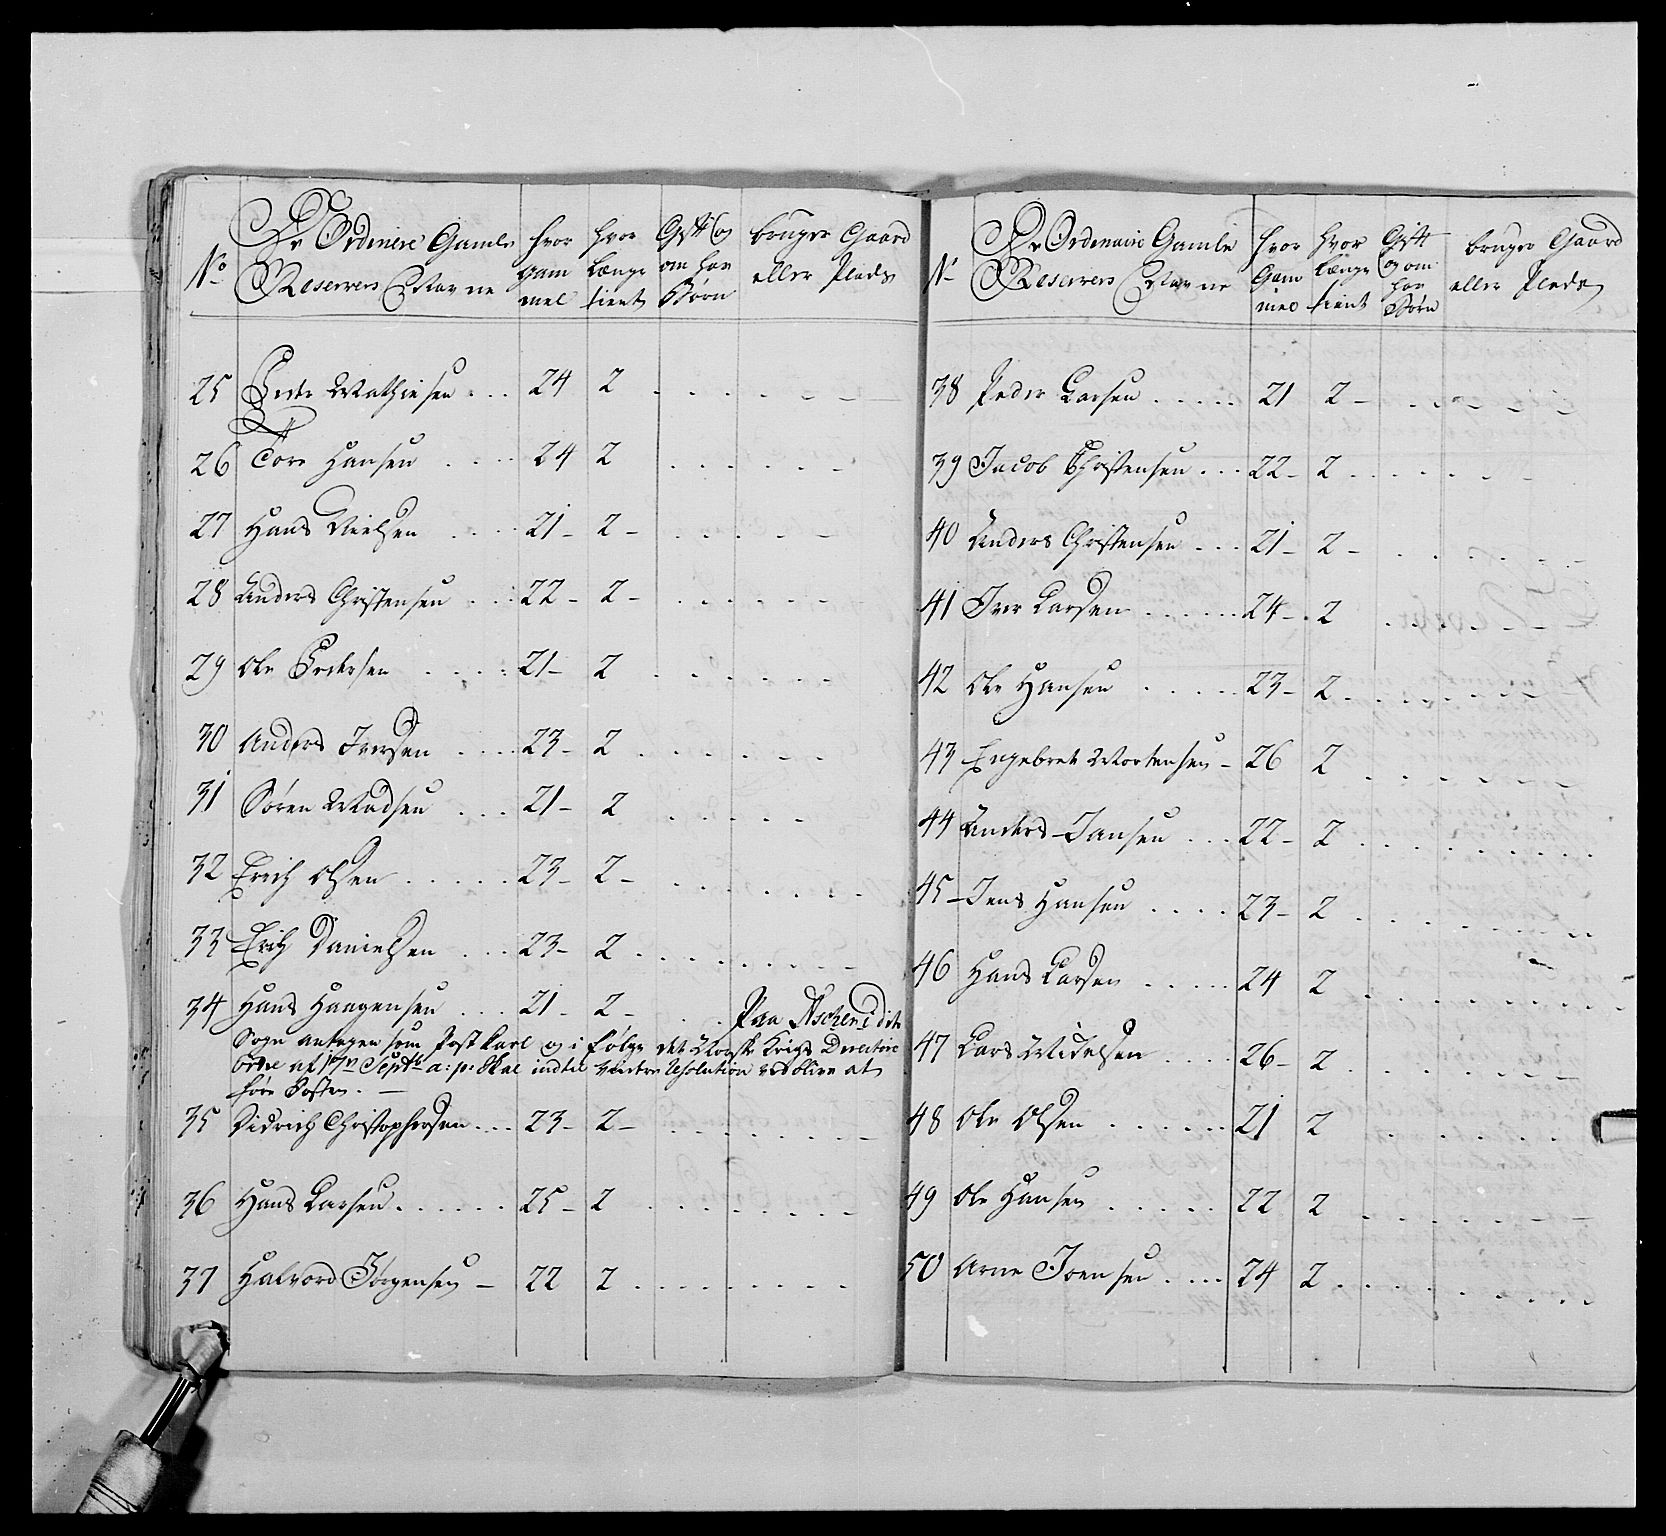 No
De Ordinere Gamle Reservers Navne
hvor gammel
hvor længe tient
Gift og om har Børn
bruger Gaard eller Plads
25 Peder Mathiesen ... 24 2
26 Tore Hansen .... 24 2
27 Hans Nielsen .... 21 - 2 -
28 Anders Christensen ... 22 - 2 -
29 Ole Pedersen .... 21 - 2
30 Anders Iversen .... 23 - 2
31 Søren Madsen ... 21 - 2
32 Erich Olsen ..... 23 - 2 -
33 Erich Danielsen ... 23 - 2
34 Hans Haagensen ... 21 - 2 - Paa Ascher i dito
Sogn antagen som Postkarl og i følge det Norske Krigs Directorii
Ordre af 17n Septbr a: p: skal indtil videre Resolution forblive at
føre Posten. -
35 Didrich Christophersen ... 23 - 2 -
36 Hans Larsen ...... 25 - 2
37 Halvord Jørgensen - 22 2
No
De Ordinaire Gamle Reservers Navne
hvor Gammel
hvor længe tient
Gift og om har Børn
bruger Gaard eller Plads
38 Peder Larsen ..... 21 2 -
39 Jacob Christensen ... 22 - 2
40 Anders Christensen ... 21 - 2 -
41 Iver Larsen ...... 24 - 2
42 Ole Hansen ..... 23 - 2
43 Engebret Mortensen - 26 2
44 Anders Jansen ... 22 - 2
45 - Jens Hansen .... 23 - 2
46 Hans Larsen ..... 24 2
47 Lars Nielsen .... 26 - 2
48 Ole Olsen ...... 21 2
49 Ole Hansen ..... 22 2
50 Arne Joensen .... 24 2